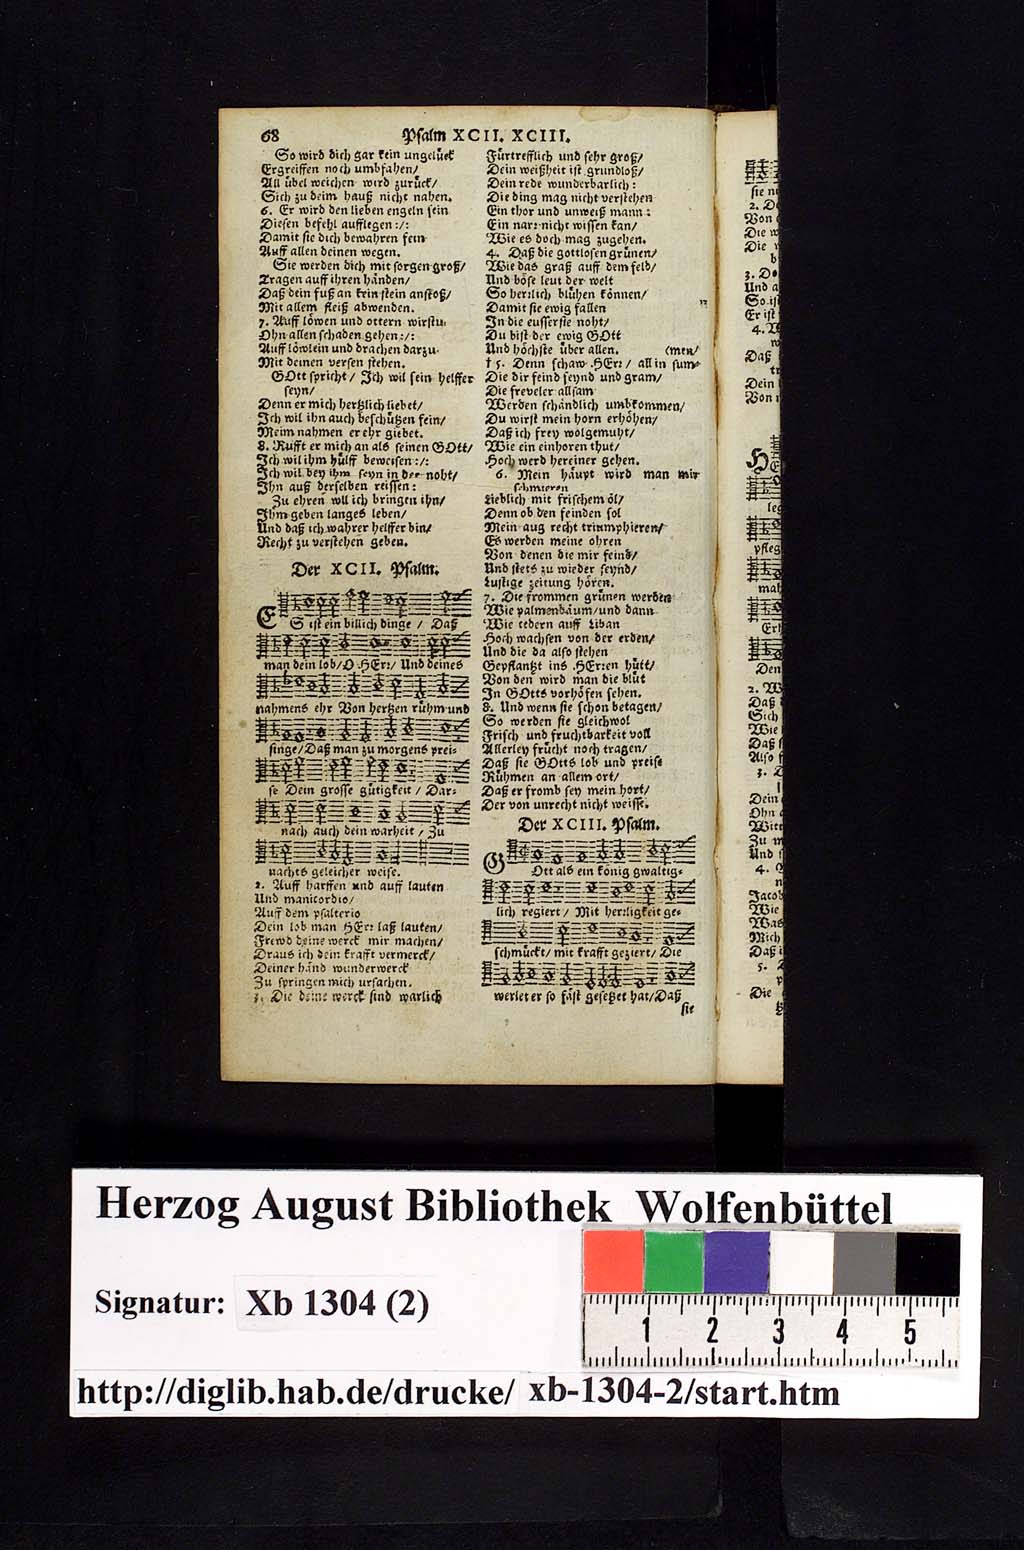 68 Psalm XCII. XCIII.
So wird dich gar kein ungelück
Ergreiffen noch umbfahen/
All übel weichen wird zurück/
Sich zu deim hauß nicht nahen.
6. Er wird den lieben engeln sein
Diesen befehl aufflegen :/:
Damit sie dich bewahren fein
Auff allen deinen wegen.
Sie werden dich mit sorgen groß/
Tragen auff ihren händen/
Daß dein fuß an kein stein anstoß/
Mit allem fleiß abwenden.
7. Auff löwen und ottern wirstu
Ohn allen schaden gehen :/:
Auff löwlein und drachen darzu
Mit deinen versen stehen.
GOtt spricht / Ich wil sein helffer
seyn/
Denn er mich hertzlich liebet/
Ich wil ihn auch beschützen fein/
Meim nahmen er ehr giebet.
8. Rufft er mich an als seinen GOtt/
Ich wil ihm hülff beweisen :/:
Ich wil bey ihm seyn in der noht/
Ihn auß derselben reissen:
Zu ehren wil ich bringen ihn/
Ihm geben langes leben/
Und daß ich wahrer helffer bin/
Recht zu verstehen geben.
Der XCII. Psalm.
ES ist ein billich dinge / Daß
man dein lob/ O HErr/ Und deines
nahmens ehr Von hertzen rühm und
singe/ Daß man zu morgens prei-
se Dein grosse gütigkeit / Dar-
nach auch dein warheit / Zu
nachts geleicher weise.
2. Auff harffen und auff lauten
Und manicordio/
Auff dem psalterio
Dein lob man HErr laß lauten/
Frewd deine werck mir machen/
Draus ich dein krafft vermerck/
Deiner händ wunderwerck
Zu springen mich ursachen.
3. Die deine werck sind warlich
Fürtrefflich und sehr groß/
Dein weißheit ist grundloß/
Dein rede wunderbarlich:
Die ding mag nicht verstehen
Ein thor und unweiß mann:
Ein narr nicht wissen kan/
Wie es doch mag zugehen.
4. Daß die gottlosen grünen/
Wie das graß auff dem feld/
Und böse leut der welt
So herrlich blühen können/
Damit sie ewig fallen
In die eusserste noht/
Du bist der ewig GOtt
Und höchste über allen. (men/
† 5. Denn schaw HErr/ all in sum-
Die dir feind seynd und gram/
Die freveler allsam
Werden schändlich umbkommen/
Du wirst mein horn erhöhen/
Daß ich frey wolgemuht/
Wie ein einhoren thut/
Hoch werd hereiner gehen.
6. Mein häupt wird man mir
schmieren
Lieblich mit frischem öl/
Denn ob den feinden sol
Mein aug recht triumphieren/
Es werden meine ohren
Von denen die mir feind/
Und stets zu wieder seynd/
Lustige zeitung hören.
7. Die frommen grünen werden
Wie palmenbäum/ und dann
Wie cedern auff Liban
Hoch wachsen von der erden/
Und die da also stehen
Gepflantzt ins HErren hütt/
Von den wird man die blüt
In GOtts vorhöfen sehen.
8. Und wenn sie schon betagen/
So werden sie gleichwol
Frisch und fruchtbarkeit voll
Allerley frücht noch tragen/
Daß sie GOtts lob und preise
Rühmen an allem ort/
Daß er fromb sey mein hort/
Der von unrecht nicht weisse.
Der XCIII. Psalm.
GOtt als ein könig gwaltig-
lich regiert / Mit herrligkeit ge-
schmückt/ mit krafft geziert/ Die
werlet er so fäst gesetzet hat/ Daß
sie
Herzog August Bibliothek Wolfenbüttel
Signatur: Xb 1304 (2)
1 2 3 4 5
http://diglib.hab.de/drucke/ xb-1304-2/start.htm